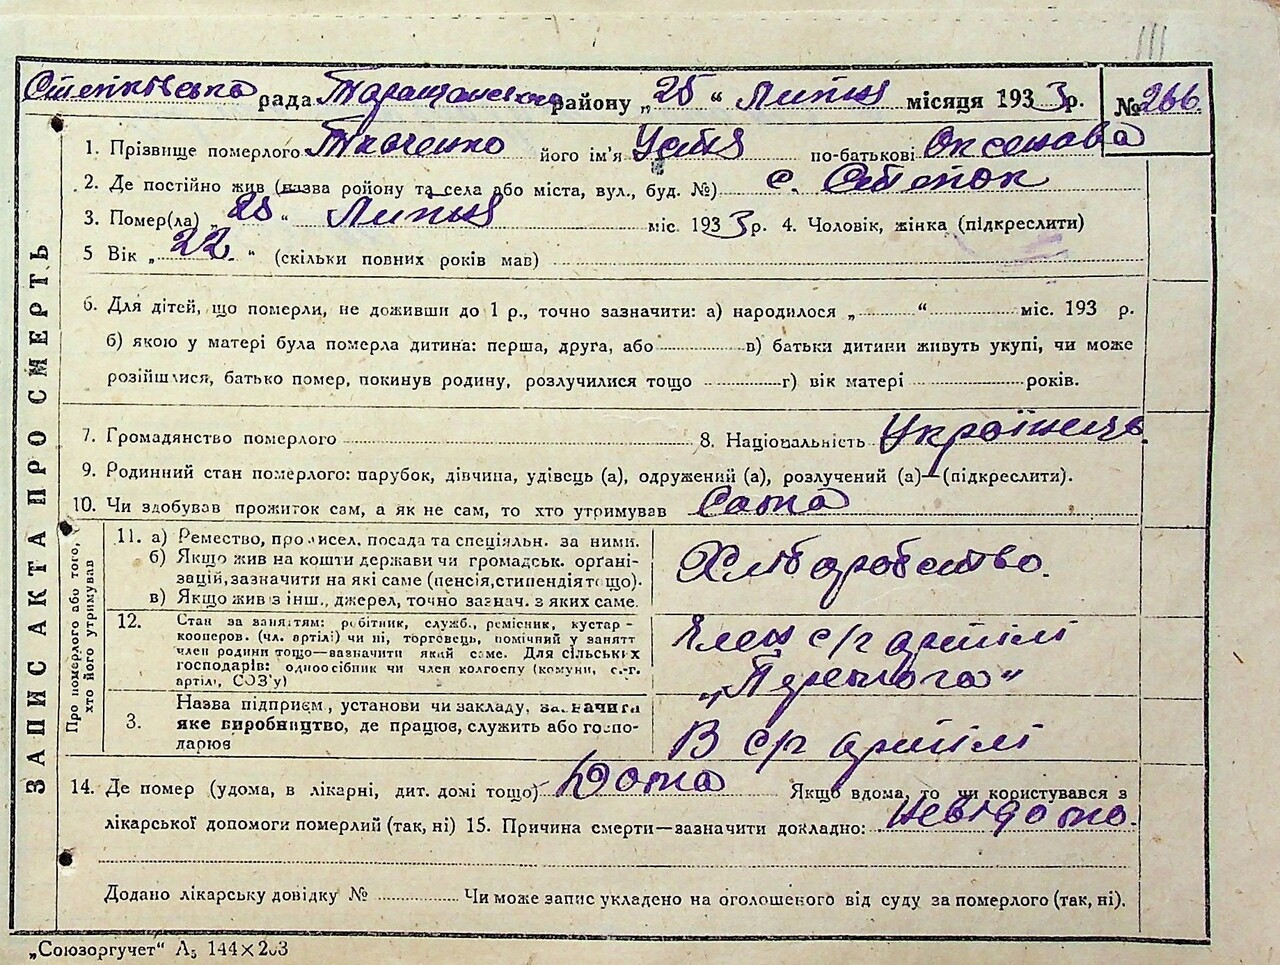 111
Степківська рада Таращанського району „25“ Липня місяця 1933 р. № 266
1. Прізвище померлого Ткаченко його ім'я Устя по-батькові Оксенова
2. Де постійно жив (назва ройону та села або міста, вул., буд. №) с. Степок
3. Помер(ла) „25“ Липня міс. 1933 р. 4. Чоловік, жінка (підкреслити)
5 Вік „22“ (скільки повних років мав)
6. Для дітей, що померли, не доживши до 1 р., точно зазначити: а) народилося „ “ міс. 193 р.
б) якою у матері була померла дитина: перша, друга, або в) батьки дитини живуть укупі, чи може
розійшлися, батько помер, покинув родину, розлучилися тощо г) вік матері років.
7. Громадянство померлого 8. Національність Українець
9. Родинний стан померлого: парубок, дівчина, удівець (а), одружений (а), розлучений (а)—(підкреслити).
10. Чи здобував прожиток сам, а як не сам, то хто утримував Сама
ЗАПИС АКТА ПРО СМЕРТЬ
Про померлого або того,
хто його утримував
11. а) Ремество, промисел, посада та спеціяльн. за ними.
б) Якщо жив на кошти держави чи громадськ. орґані-
зацій, зазначити на які саме (пенсія, стипендія тощо).
в) Якщо жив з інш., джерел, точно зазнач. з яких саме.
Хліборобство.
12. Стан за заняттям: робітник, служб., ремісник, кустар-
кооперов. (чл. артілі) чи ні, торговець, помічний у занятт
член родини тощо—зазначити який саме. Для сільських
господарів: одноосібник чи член колгоспу (комуни, с.-г.
артілі, СОЗ'у)
Член с/г артілі
„Перемога“
3. Назва підприєм, установи чи закладу, зазначити
яке виробництво, де працює, служить або госпо-
дарює
В с/г артілі
14. Де помер (удома, в лікарні, дит. домі тощо) Дома Якщо вдома, то чи користувався з
лікарської допомоги померлий (так, ні) 15. Причина смерти—зазначити докладно: Невідома.
Додано лікарську довідку № Чи може запис укладено на оголошеного від суду за померлого (так, ні).
„Союзоргучет“ А5 144×203